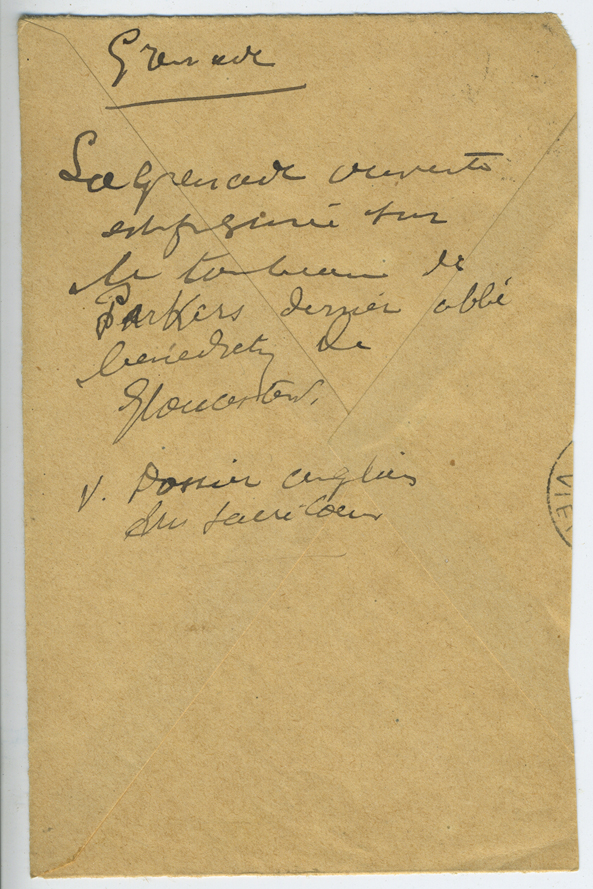 Grenade
La grenade ouverte
est figurée sur
le tombeau de
Parkers dernier abbé
bénédictin de
Gloucester.
V. Dossier anglais
du Sacré Coeur
VIE